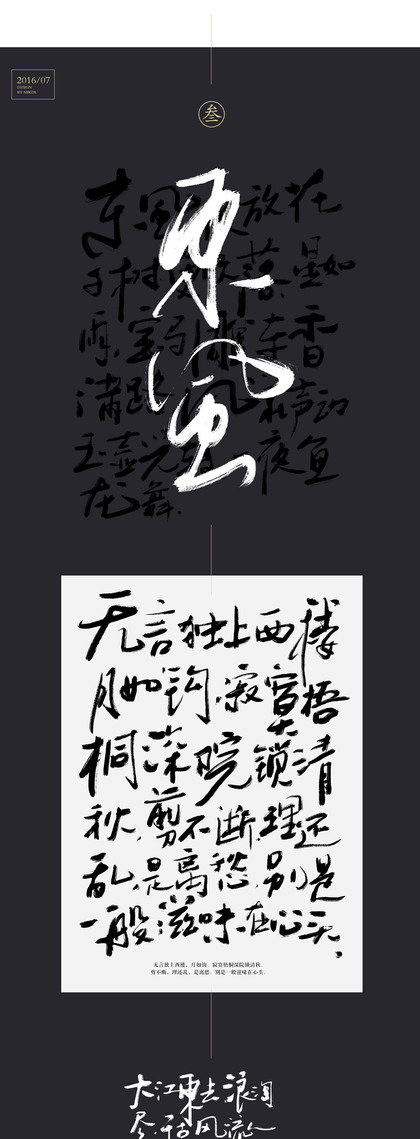 2016/07
DESIGN
BY
叁
東風
东風 放花
千树 落星如
雨宝马雕车香
满路 声动
玉壶光转 夜鱼
龙舞
无言独上西楼
月如钩寂寞梧
桐深院锁清
秋剪不断理还
乱是离愁别是
一般滋味在心头
无言独上西楼，月如钩。寂寞梧桐深院锁清秋。
剪不断，理还乱，是离愁。别是一般滋味在心头。
大江東去浪淘
尽千古风流人